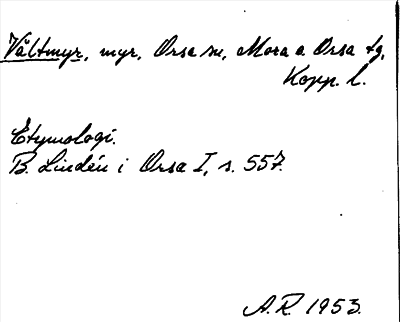 Vältmyr, myr, Orsa sn, Mora o Orsa tg,
Kopp. l.
Etymologi.
B. Lindén i Orsa I, s. 557.
A.R. 1953.